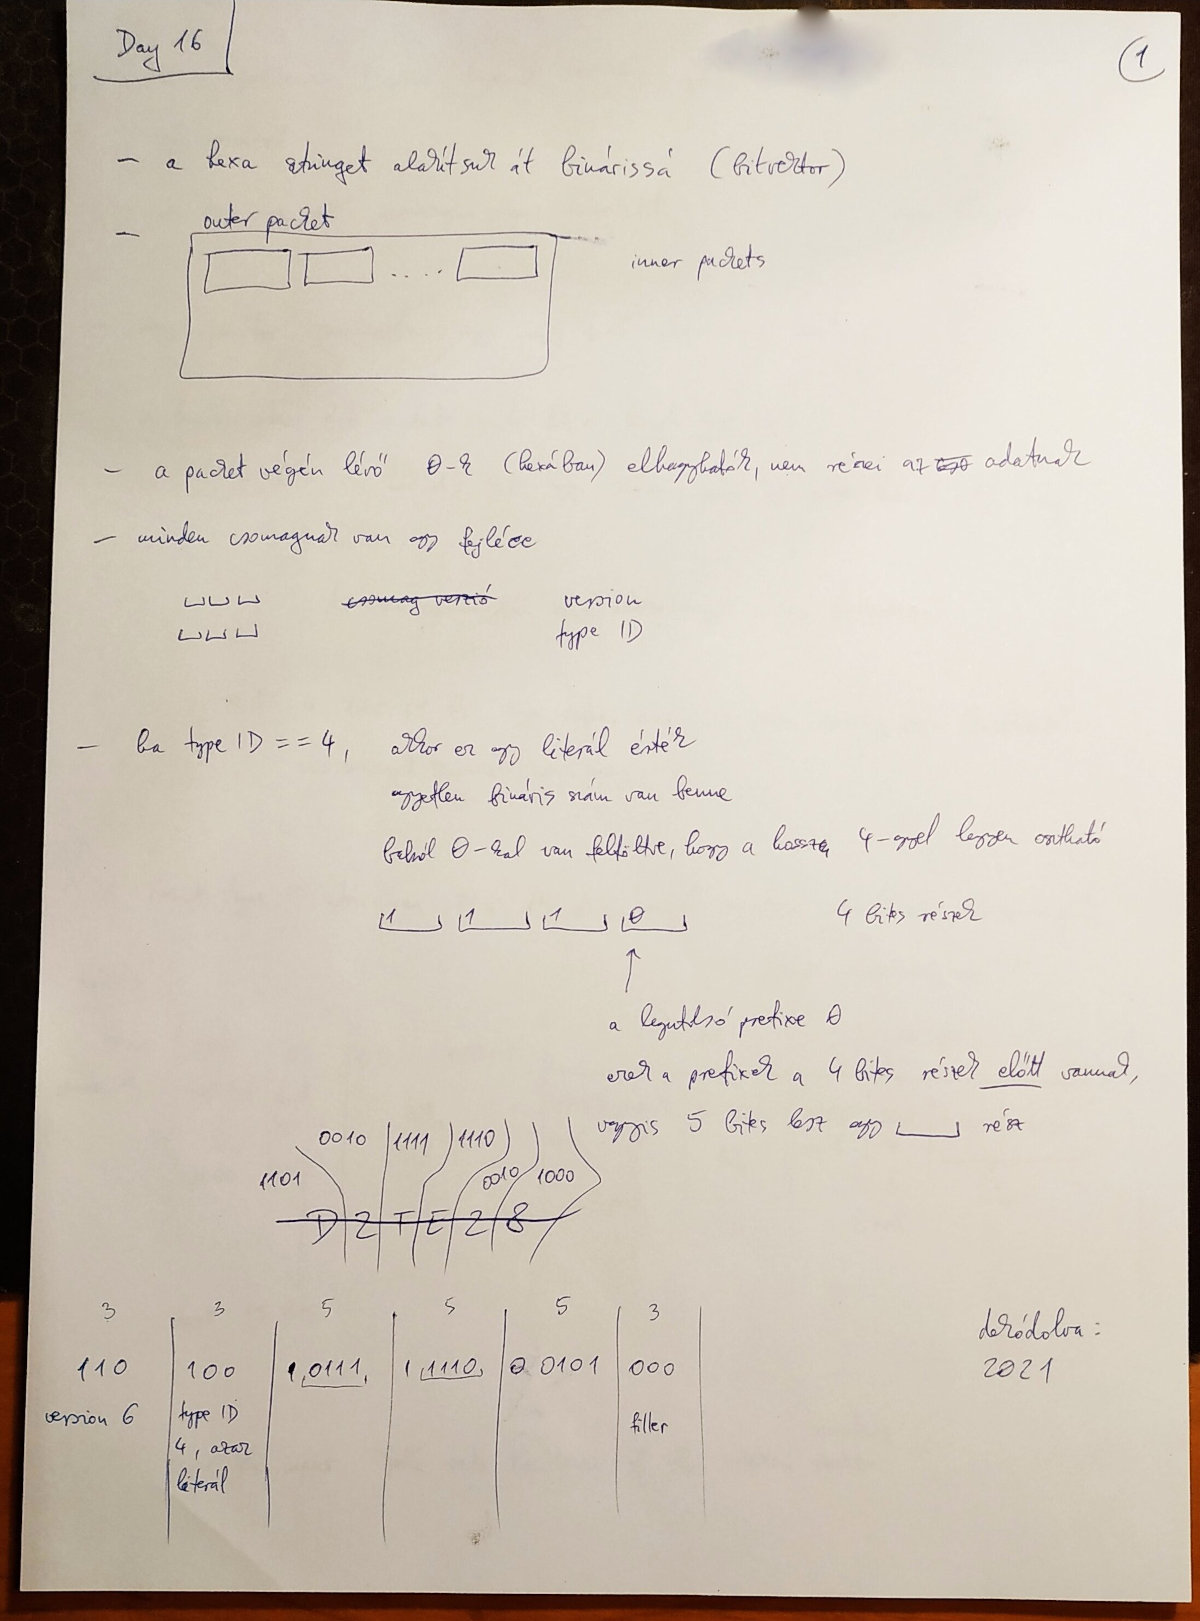 Day 16
1
- a hexa stringet alakítsuk át binárissá (bitvektor)
- outer packet
..... inner packets
- a packet végén lévő 0-k (hexában) elhagyhatók, nem részei az adatnak
- minden csomagnak van egy fejléce
csomag verzió version
type ID
- ha type ID == 4, akkor ez egy literál érték
egyetlen bináris szám van benne
balról 0-kal van feltöltve, hogy a hossza 4-gyel legyen osztható
1 1 1 0 4 bites részek
a legutolsó prefixe 0
ezek a prefixek a 4 bites részek előtt vannak,
vagyis 5 bites lesz egy rész
0010 1111 1110
1101 0010 1000
D 2 F E 2 8
3 3 5 5 5 3
dekódolva:
110 100 1 0111 1 1110 0 0101 000 2021
version 6 type ID filler
4, azaz
literál